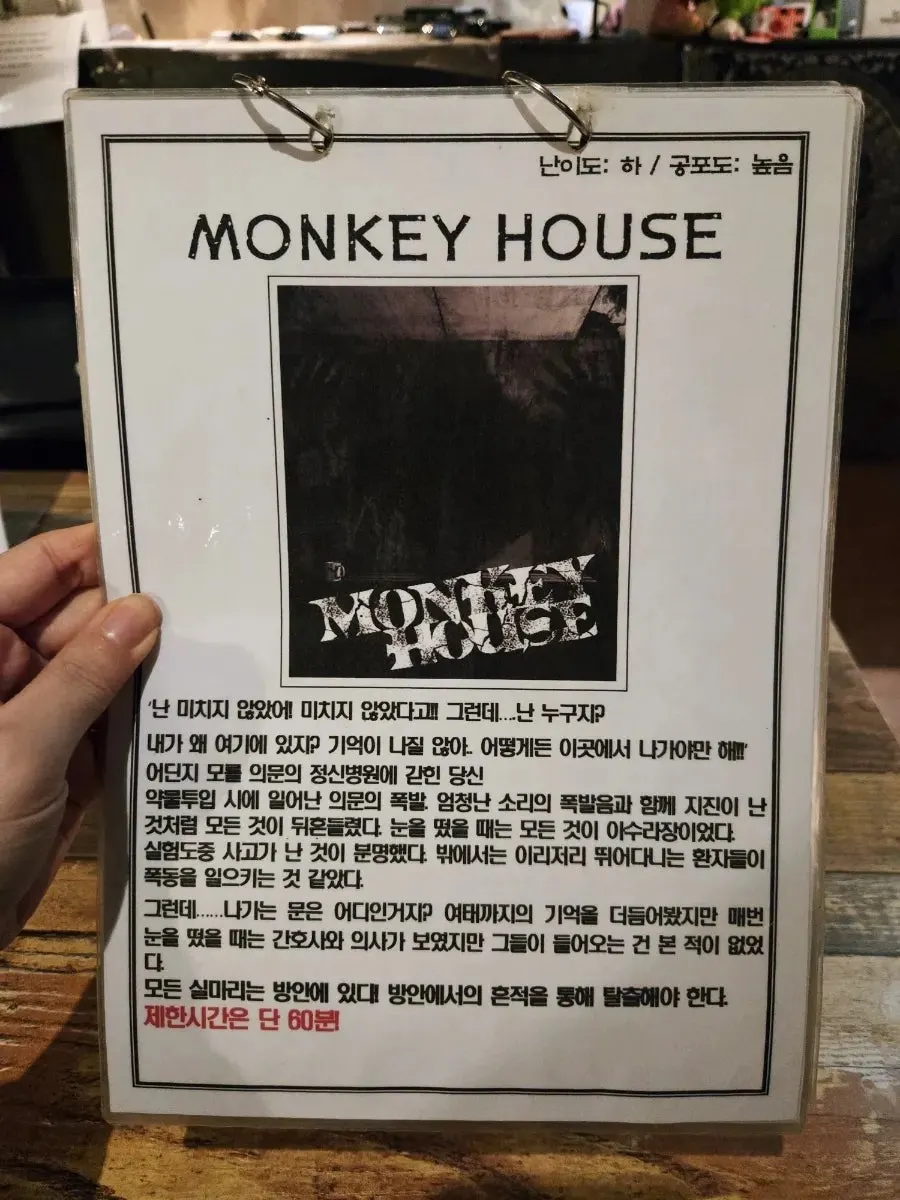 난이도: 하 / 공포도: 높음
MONKEY HOUSE
MONKEY
HOUSE
'난 미치지 않았어! 미치지 않았다고!!! 그런데....난 누구지?
내가 왜 여기에 있지? 기억이 나질 않아.. 어떻게든 이곳에서 나가야만 해!!!'
어딘지 모를 의문의 정신병원에 갇힌 당신
약물투입 시에 일어난 의문의 폭발. 엄청난 소리의 폭발음과 함께 지진이 난
것처럼 모든 것이 뒤흔들렸다. 눈을 떴을 때는 모든 것이 아수라장이었다.
실험도중 사고가 난 것이 분명했다. 밖에서는 이리저리 뛰어다니는 환자들이
폭동을 일으키는 것 같았다.
그런데......나가는 문은 어디인거지? 여태까지의 기억을 더듬어봤지만 매번
눈을 떴을 때는 간호사와 의사가 보였지만 그들이 들어오는 건 본 적이 없었
다.
모든 실마리는 방안에 있다! 방안에서의 흔적을 통해 탈출해야 한다.
제한시간은 단 60분!